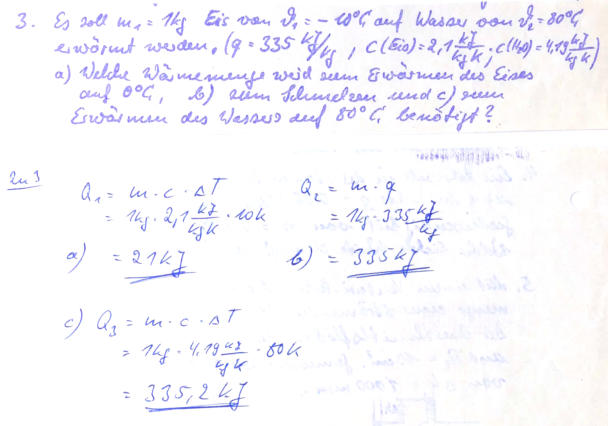 3. Es soll m₁ = 1kg Eis von ϑ₁ = -10°C auf Wasser von ϑ₂ = 80°C
erwärmt werden. (q = 335 kJ/kg, c(Eis) = 2,1 kJ/kgK, c(H₂O) = 4,19 kJ/kgK)
a) Welche Wärmemenge wird zum Erwärmen des Eises
auf 0°C, b) zum Schmelzen und c) zum
Erwärmen des Wassers auf 80°C benötigt?
Zu 3
Q₁ = m · c · ΔT
= 1kg · 2,1 kJ/kgK · 10K
a) = 21kJ
Q₂ = m · q
= 1kg · 335 kJ/kg
b) = 335kJ
c) Q₃ = m · c · ΔT
= 1kg · 4,19 kJ/kgK · 80K
= 335,2 kJ